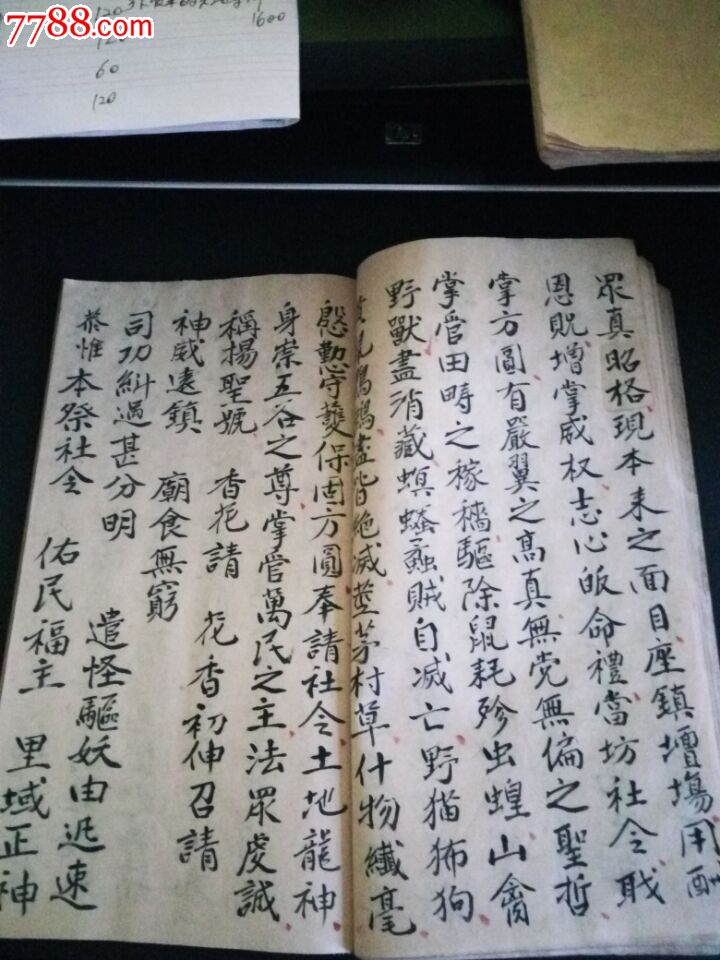 7788.com
120
1600
120
60
120
眾真昭格現本来之面目座鎮壇塲用酬
恩貺增掌威权志心皈命禮當坊社令戝
掌方圓有嚴翼之髙真無党無偏之聖哲
掌管田畴之稼穡驅除鼠耗殄虫蝗山禽
野獸盡消藏螟蟊賊自滅亡野猫狗
盡皆绝滅茅村草什物纖毫
慇懃守護保固方圓奉請社令土地龍神
身崇五谷之尊掌管萬民之主法眾虔誠
稱揚聖號 香花請 花香初伸召請
神威遠鎮 廟食無窮
司功糾過甚分明 遣怪驅妖由遅速
恭惟本祭社令 佑民福主 里域正神